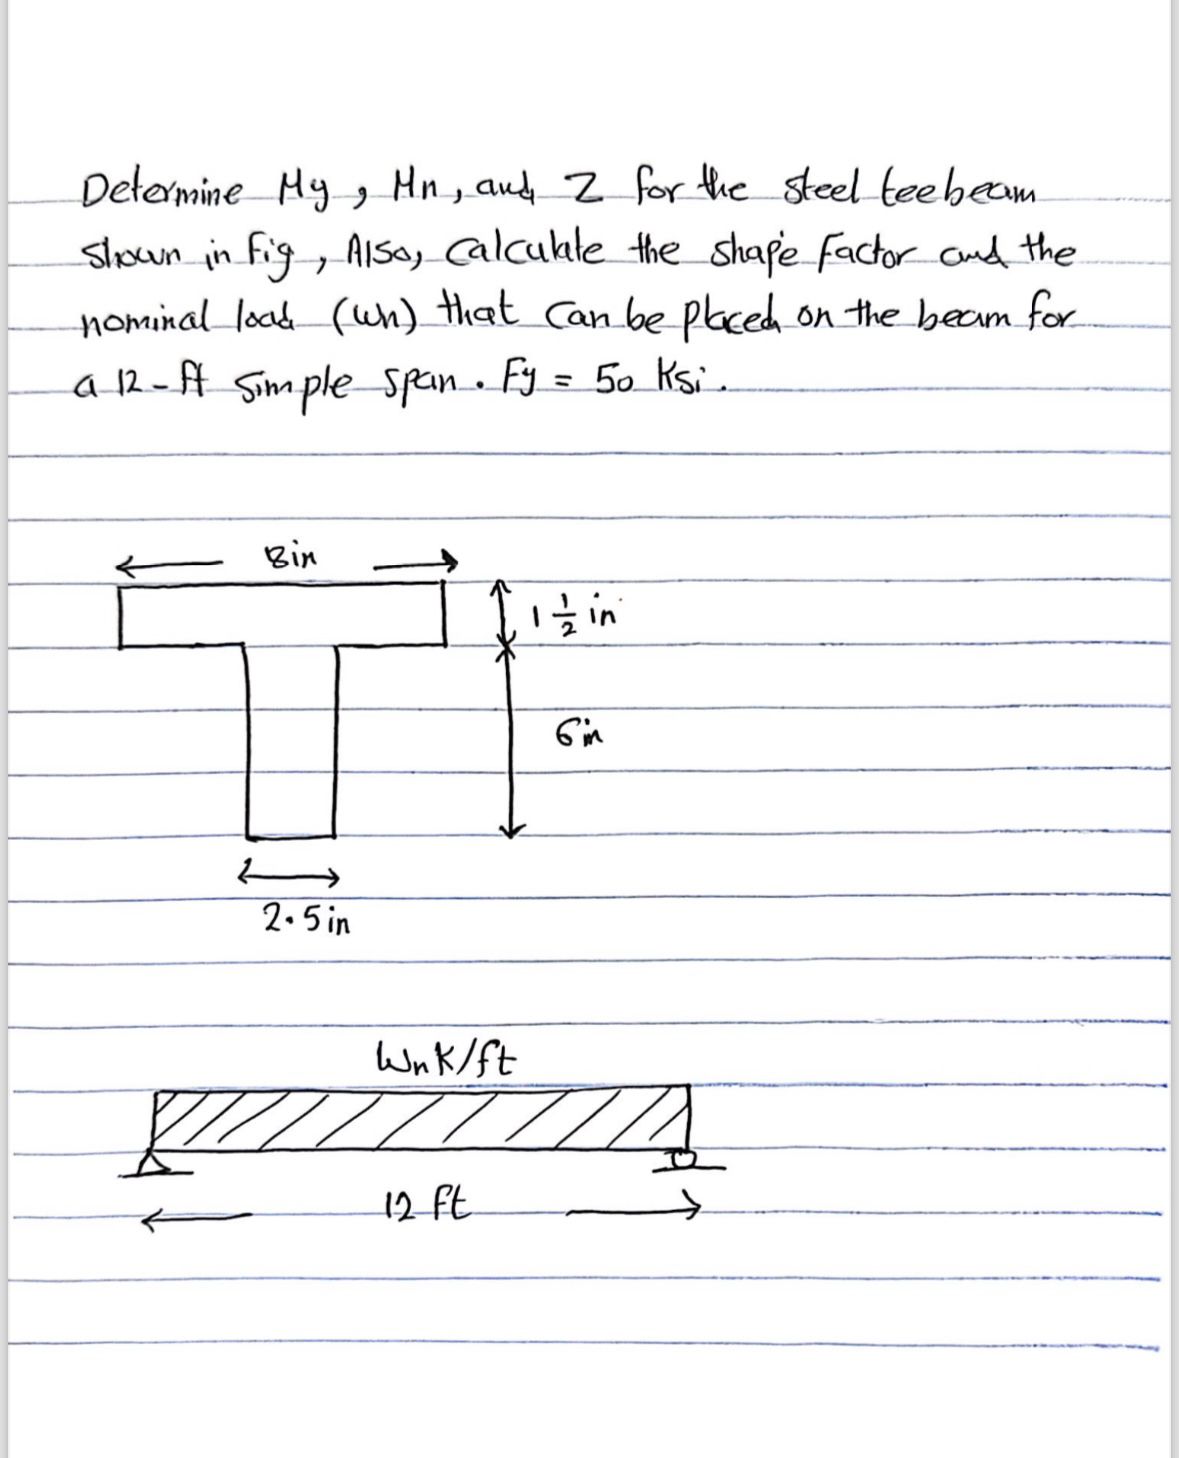 Determine My, Mn, and Z for the steel tee beam
shown in fig, Also, Calculate the shape Factor and the
nominal load (wn) that Can be placed on the beam for
a 12-ft simple span. Fy = 50 Ksi.
8in
1 1/2 in
6in
2.5in
Wn K/ft
12 ft